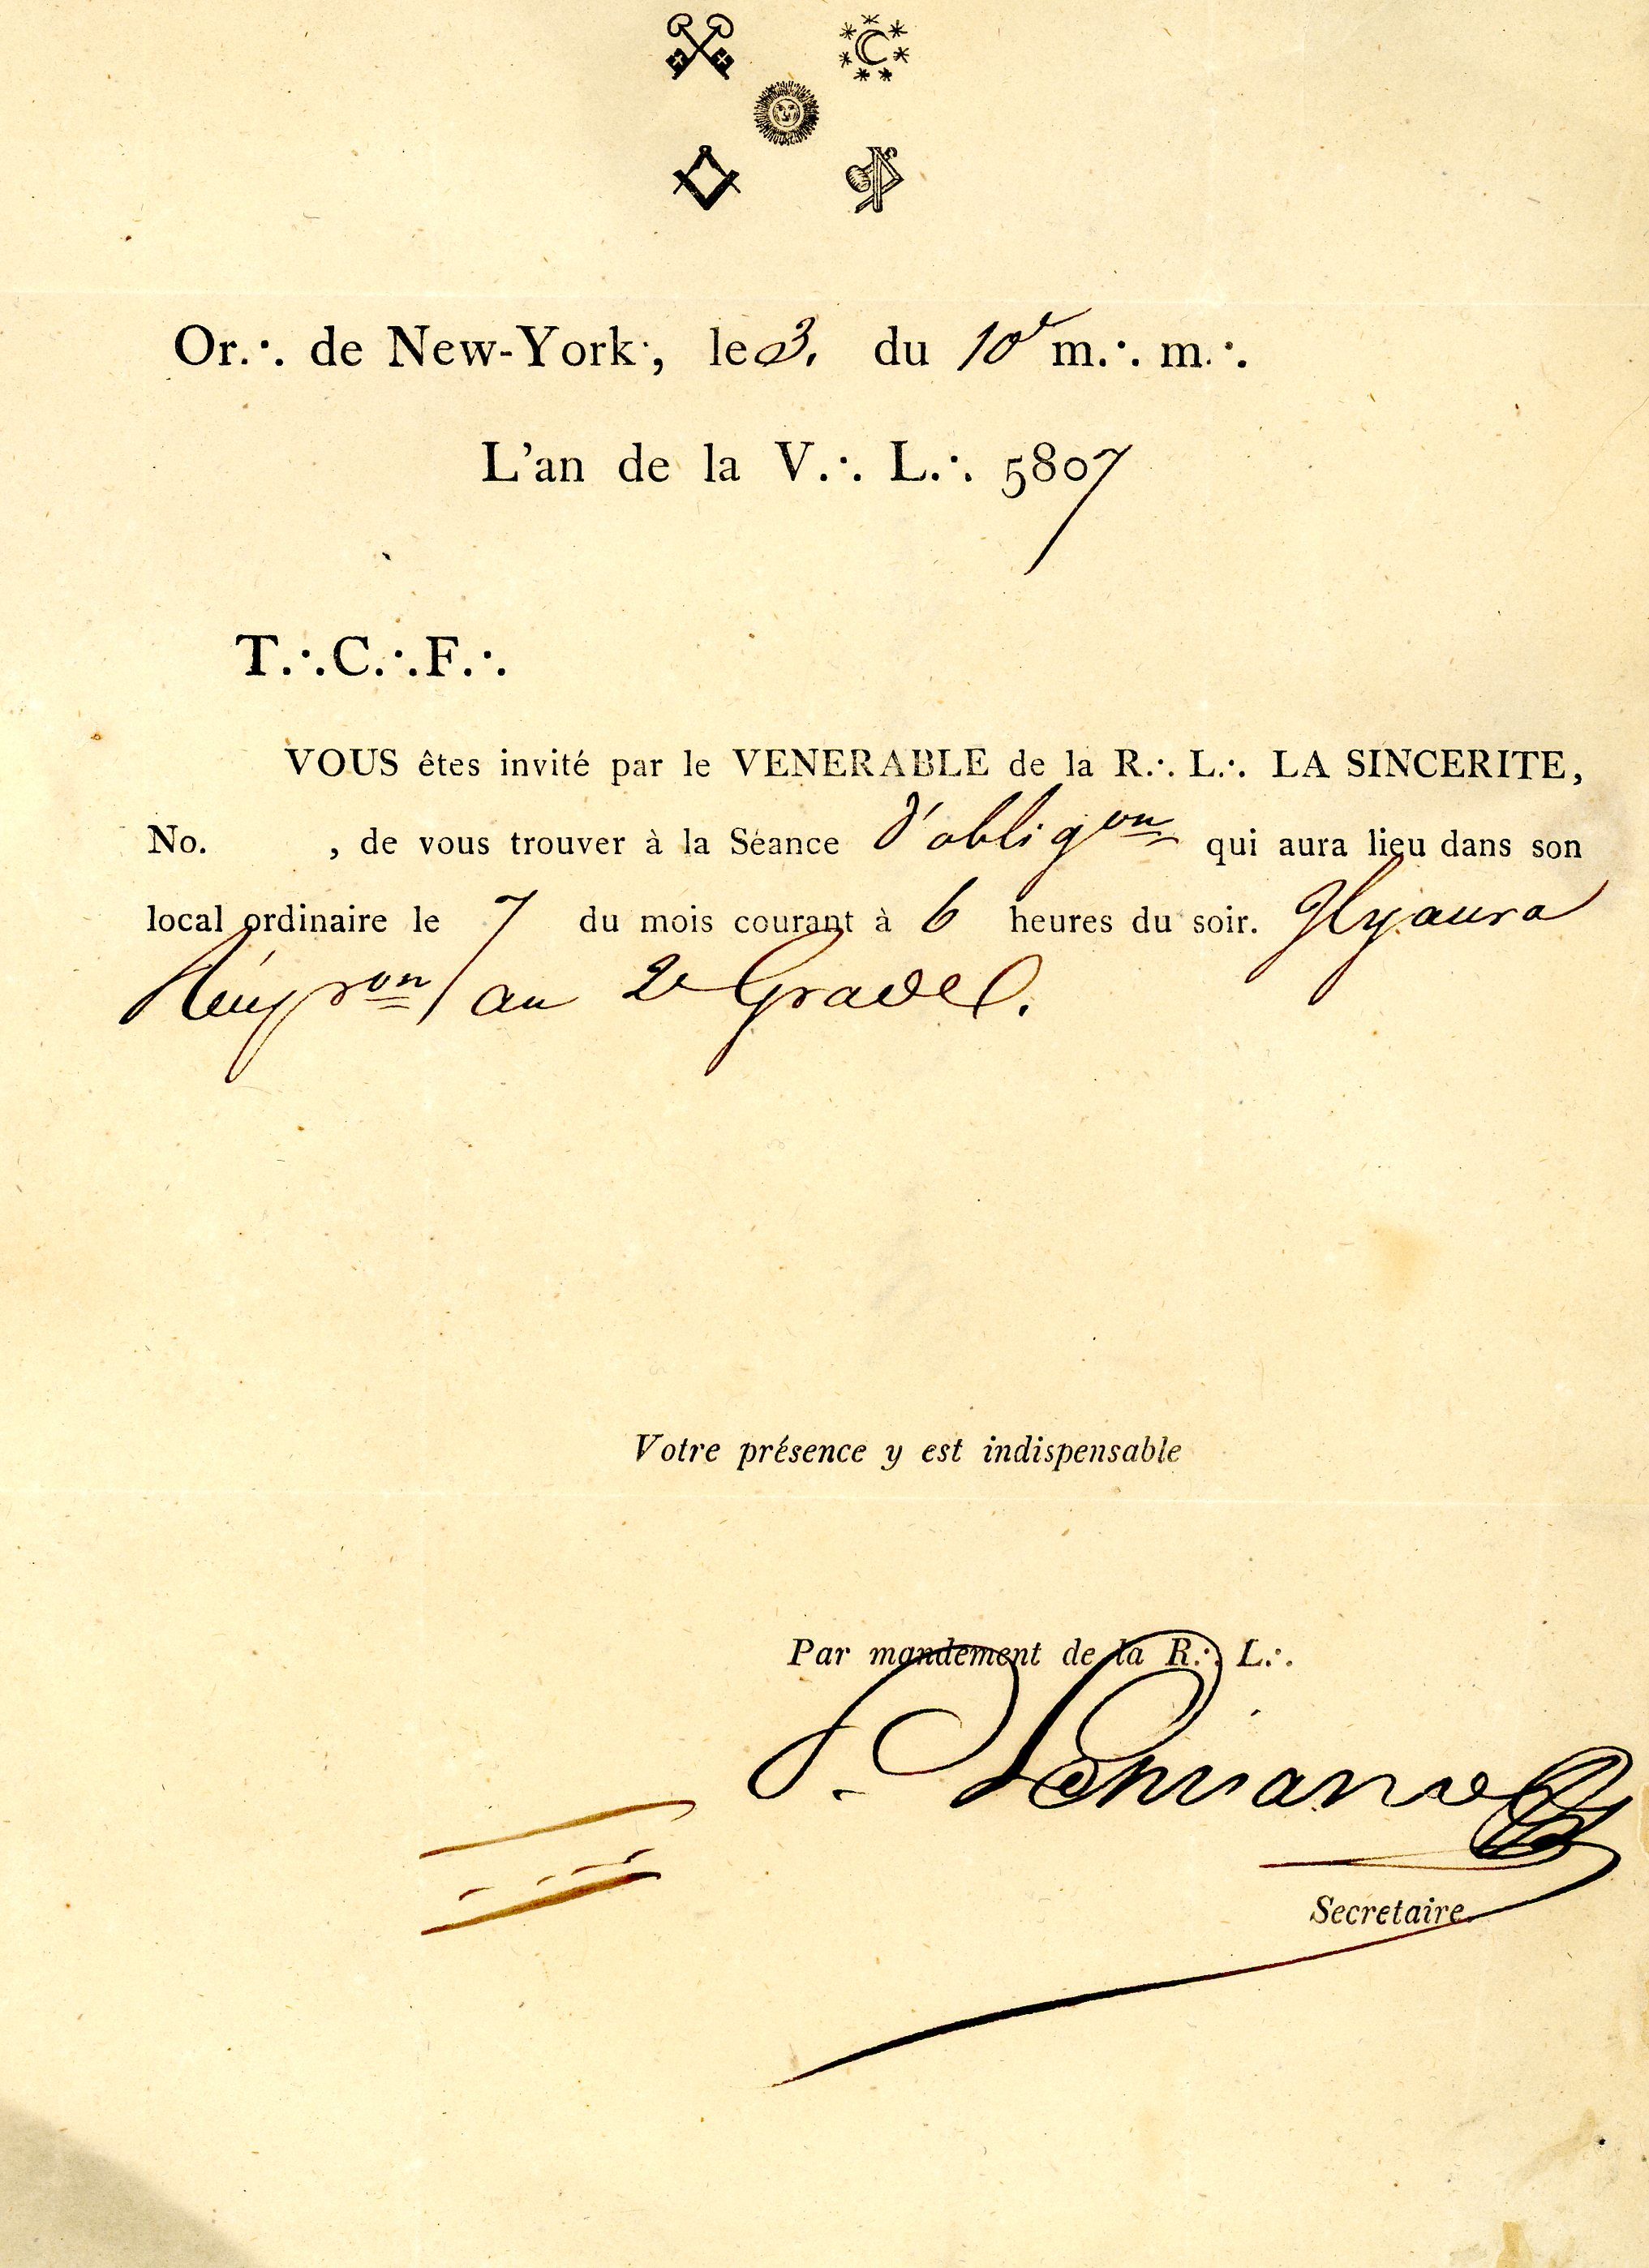 Or.∴ de New-York, le 3. du 10e m.∴ m.∴
L'an de la V.∴ L.∴ 5807
T.∴C.∴F.∴
VOUS êtes invité par le VENERABLE de la R.∴ L.∴ LA SINCERITE,
No. , de vous trouver à la Séance d'obligon qui aura lieu dans son
local ordinaire le 7 du mois courant à 6 heures du soir. Il y aura
au 2e Grade.
Votre présence y est indispensable
Par mandement de la R.∴ L.∴
Secretaire.